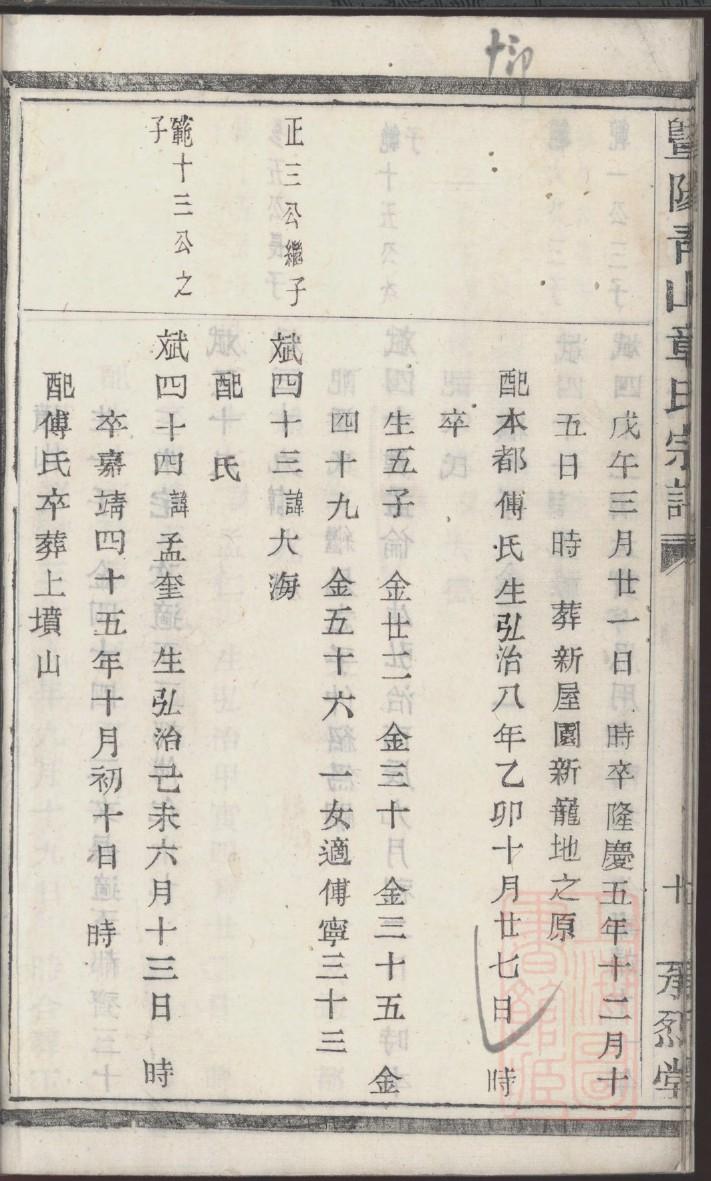 暨陽青山章氏宗譜
承烈堂
戊午三月廿一日 時卒隆慶五年十二月十
五日 時 葬新屋園新龍地之原
配本都傅氏生弘治八年乙卯十月廿七日 時
卒
生五子 金廿二 金三十 金三十五 金
四十九 金五十六 一女適傅寧三十三
正三公繼子
斌四十三諱大海
配 氏
範十三公之
子
斌四十四諱孟奎 生弘治己未六月十三日 時
卒嘉靖四十五年十月初十日 時
配傅氏卒葬上墳山